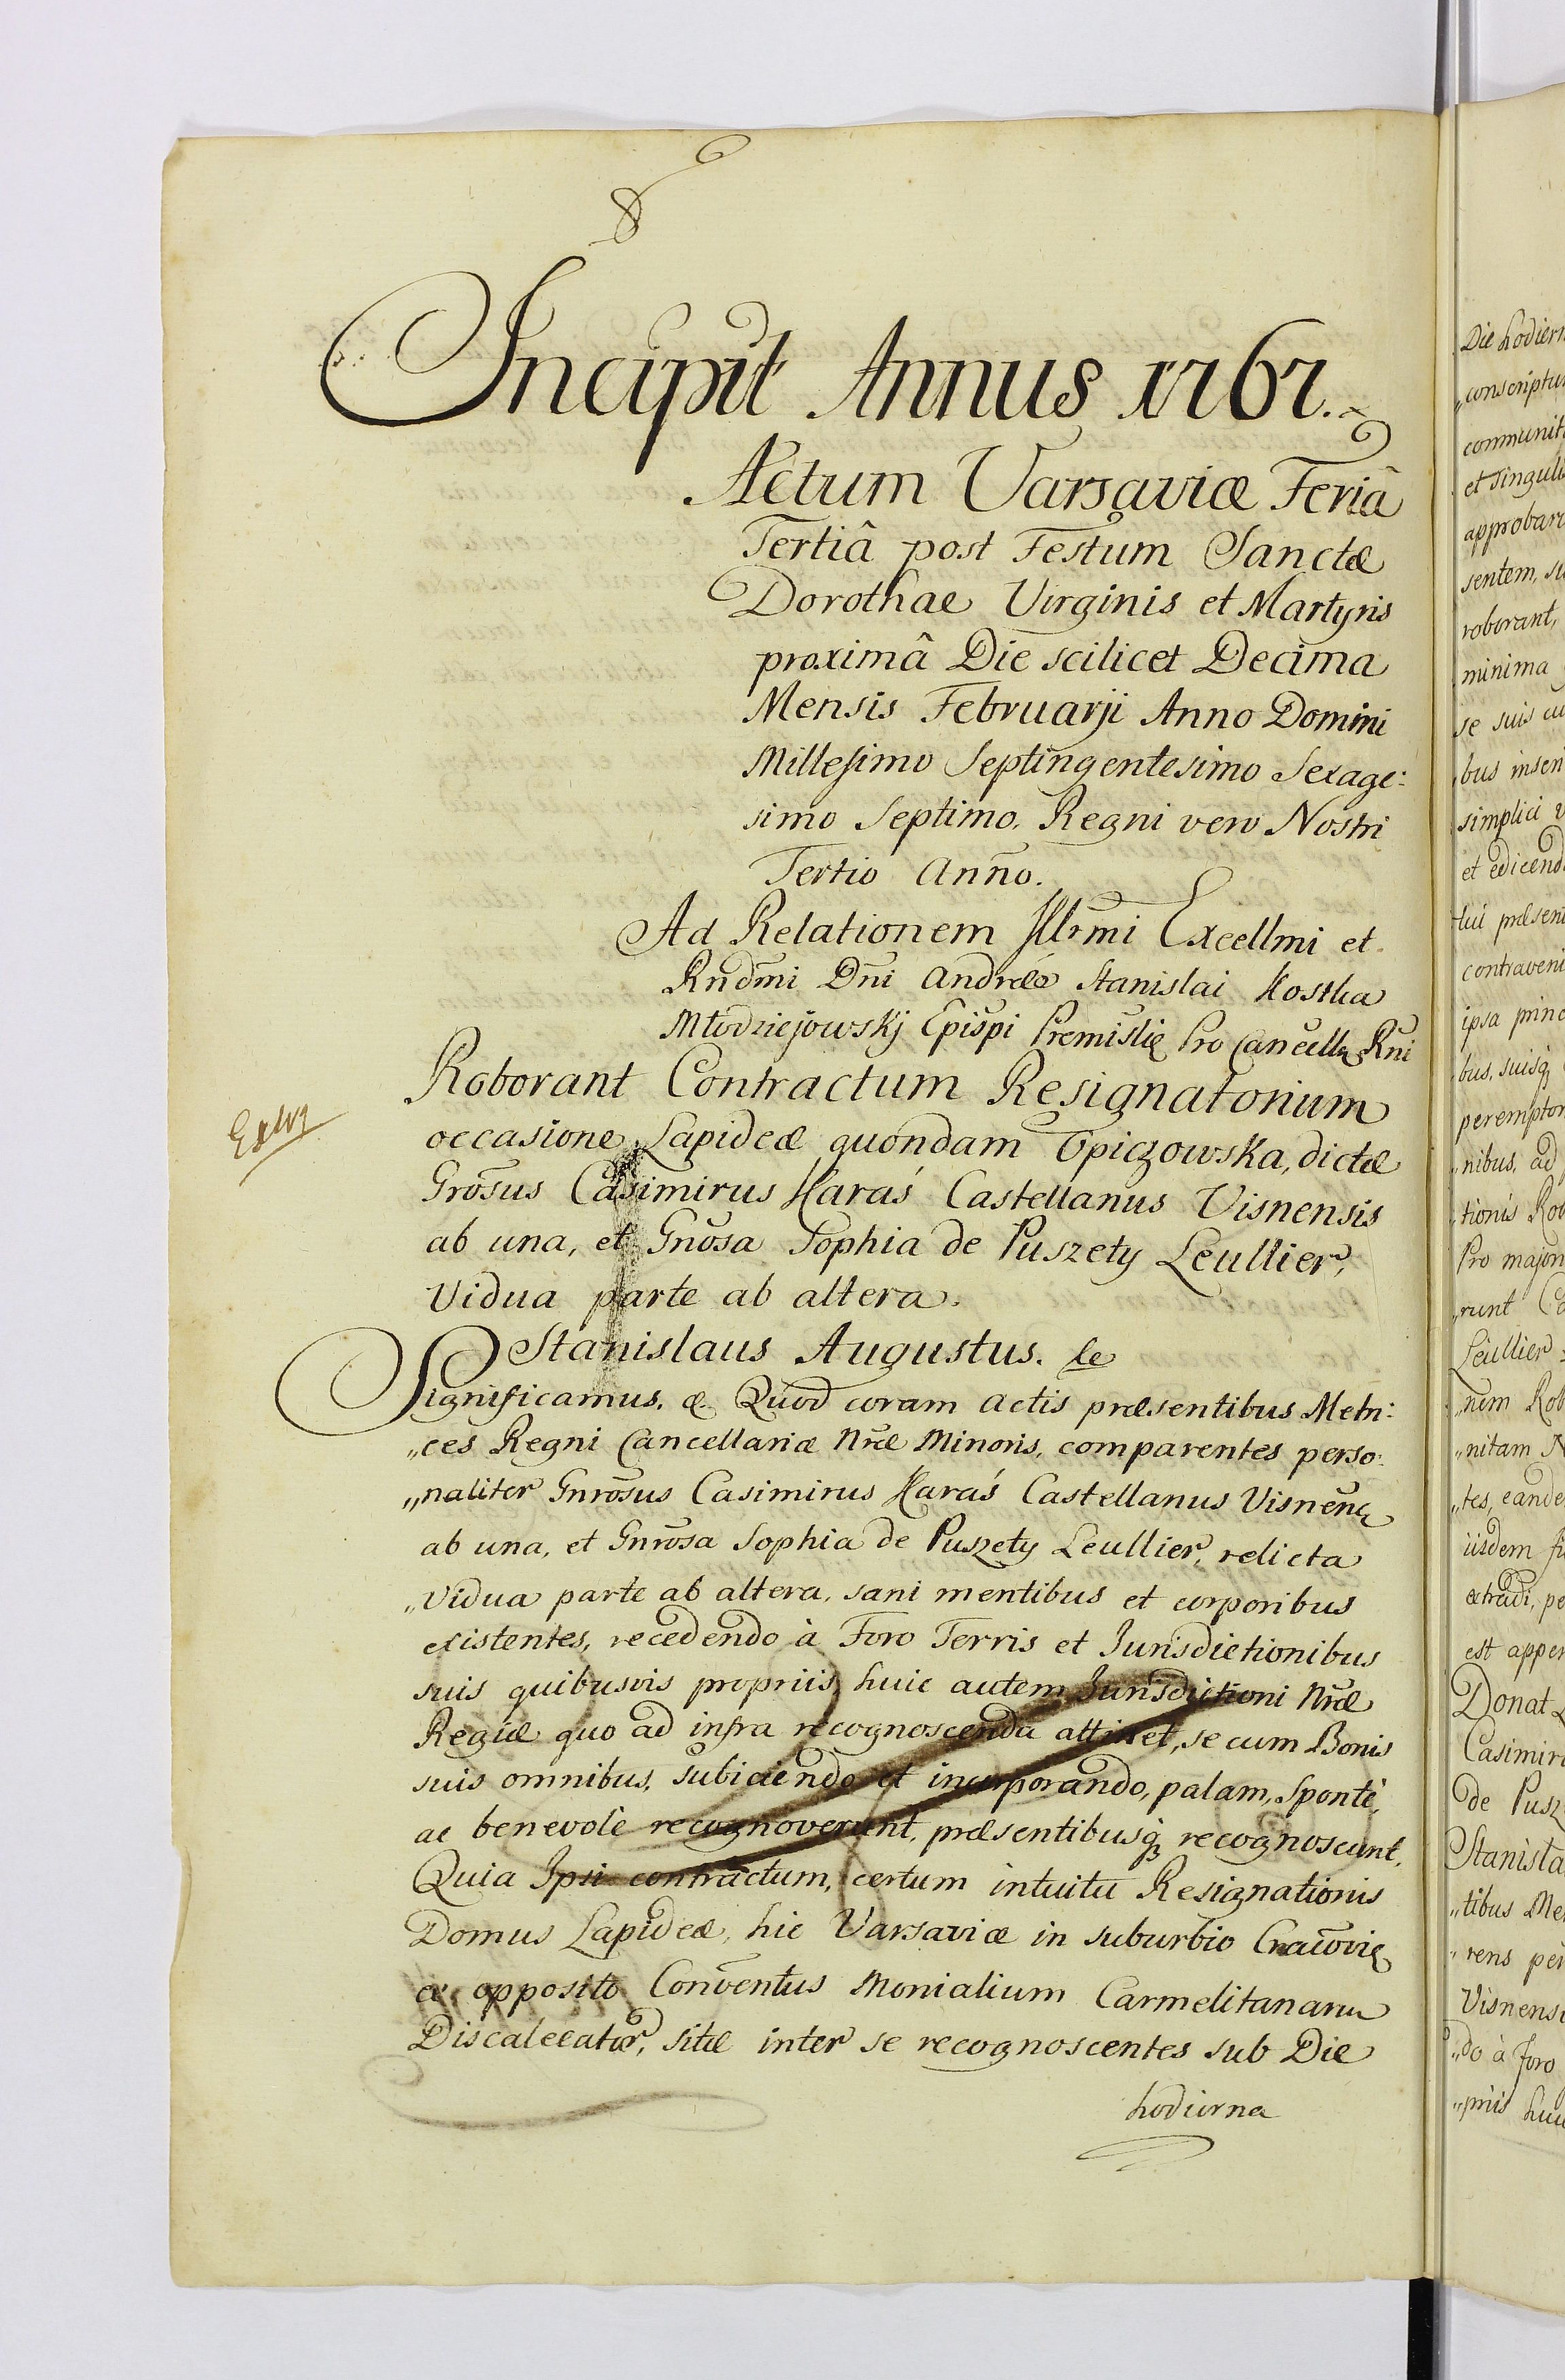 Incipit Annus 1767.
Actum Varsaviæ Feriâ
Tertiâ post Festum Sanctæ
Dorothae Virginis et Martyris
proximâ Die scilicet Decima
Mensis Februarji Anno Domini
Millesimo Septingentesimo Sexage:
simo Septimo. Regni vero Nostri
Tertio Anño.
Ad Relationem Illrmi Excellmi et
Rndmi Dni Andreæ Stanislai Kostka
Młodziejowskj Epispi Premislię Pro Cancellę Rni
Roborant Contractum Resignatorium
occasione Lapideæ quondam Opiczowska, dictæ
Grosus Casimirus Karaś Castellanus Visnensis
ab una, et Gnosa Sophia de Puszety Leullier,
Vidua parte ab altera.
Extrą
Stanislaus Augustus. &c
Significamus. &. Quod coram Actis præsentibus Metri:
„ces Regni Cancellariæ Nræ Minoris, comparentes perso:
„naliter Gnrosus Casimirus Karaś Castellanus Visnenę
ab una, et Gnrosa Sophia de Puszety Leullier, relicta
„Vidua parte ab altera, sani mentibus et corporibus
existentes, recedendo à Foro Terris et Jurisdictionibus
suis quibusvis propriis, huic autem Jurisdictioni Nræ
Regiæ quo ad infra recognoscenda attinet, se cum Bonis
suis omnibus, subiciendo et incorporando, palam, Spontè,
ac benevolè recognoverunt, præsentibusq; recognoscunt.
Quia Ipsi contractum, certum intuitu Resignationis
Domus Lapideæ, hic Varsaviæ in suburbio Cracovię
ex opposito Conventus Monialium Carmelitanaru
Discalceatar, sitæ inter se recognoscentes sub Die
hodierna
Die hodiern
„conscriptu
communit
et singuli
approbar
sentem, su
roborant,
minima
se suis cu
bus inseri
simplici v
et edicend
tui præsent
contraveni
ipsa princ
bus, suisq;
perempto
„nibus, ad
„tionis Rob
Pro majori
„runt Ca
Leullier
„nem Rob
„nitam N
„tes, eande
iisdem
extradi, pe
est appen
Donat
Casimir
de Pusz
Stanisla
„tibus Me
„rens per
Visnensi
„do à Foro
„priis huic